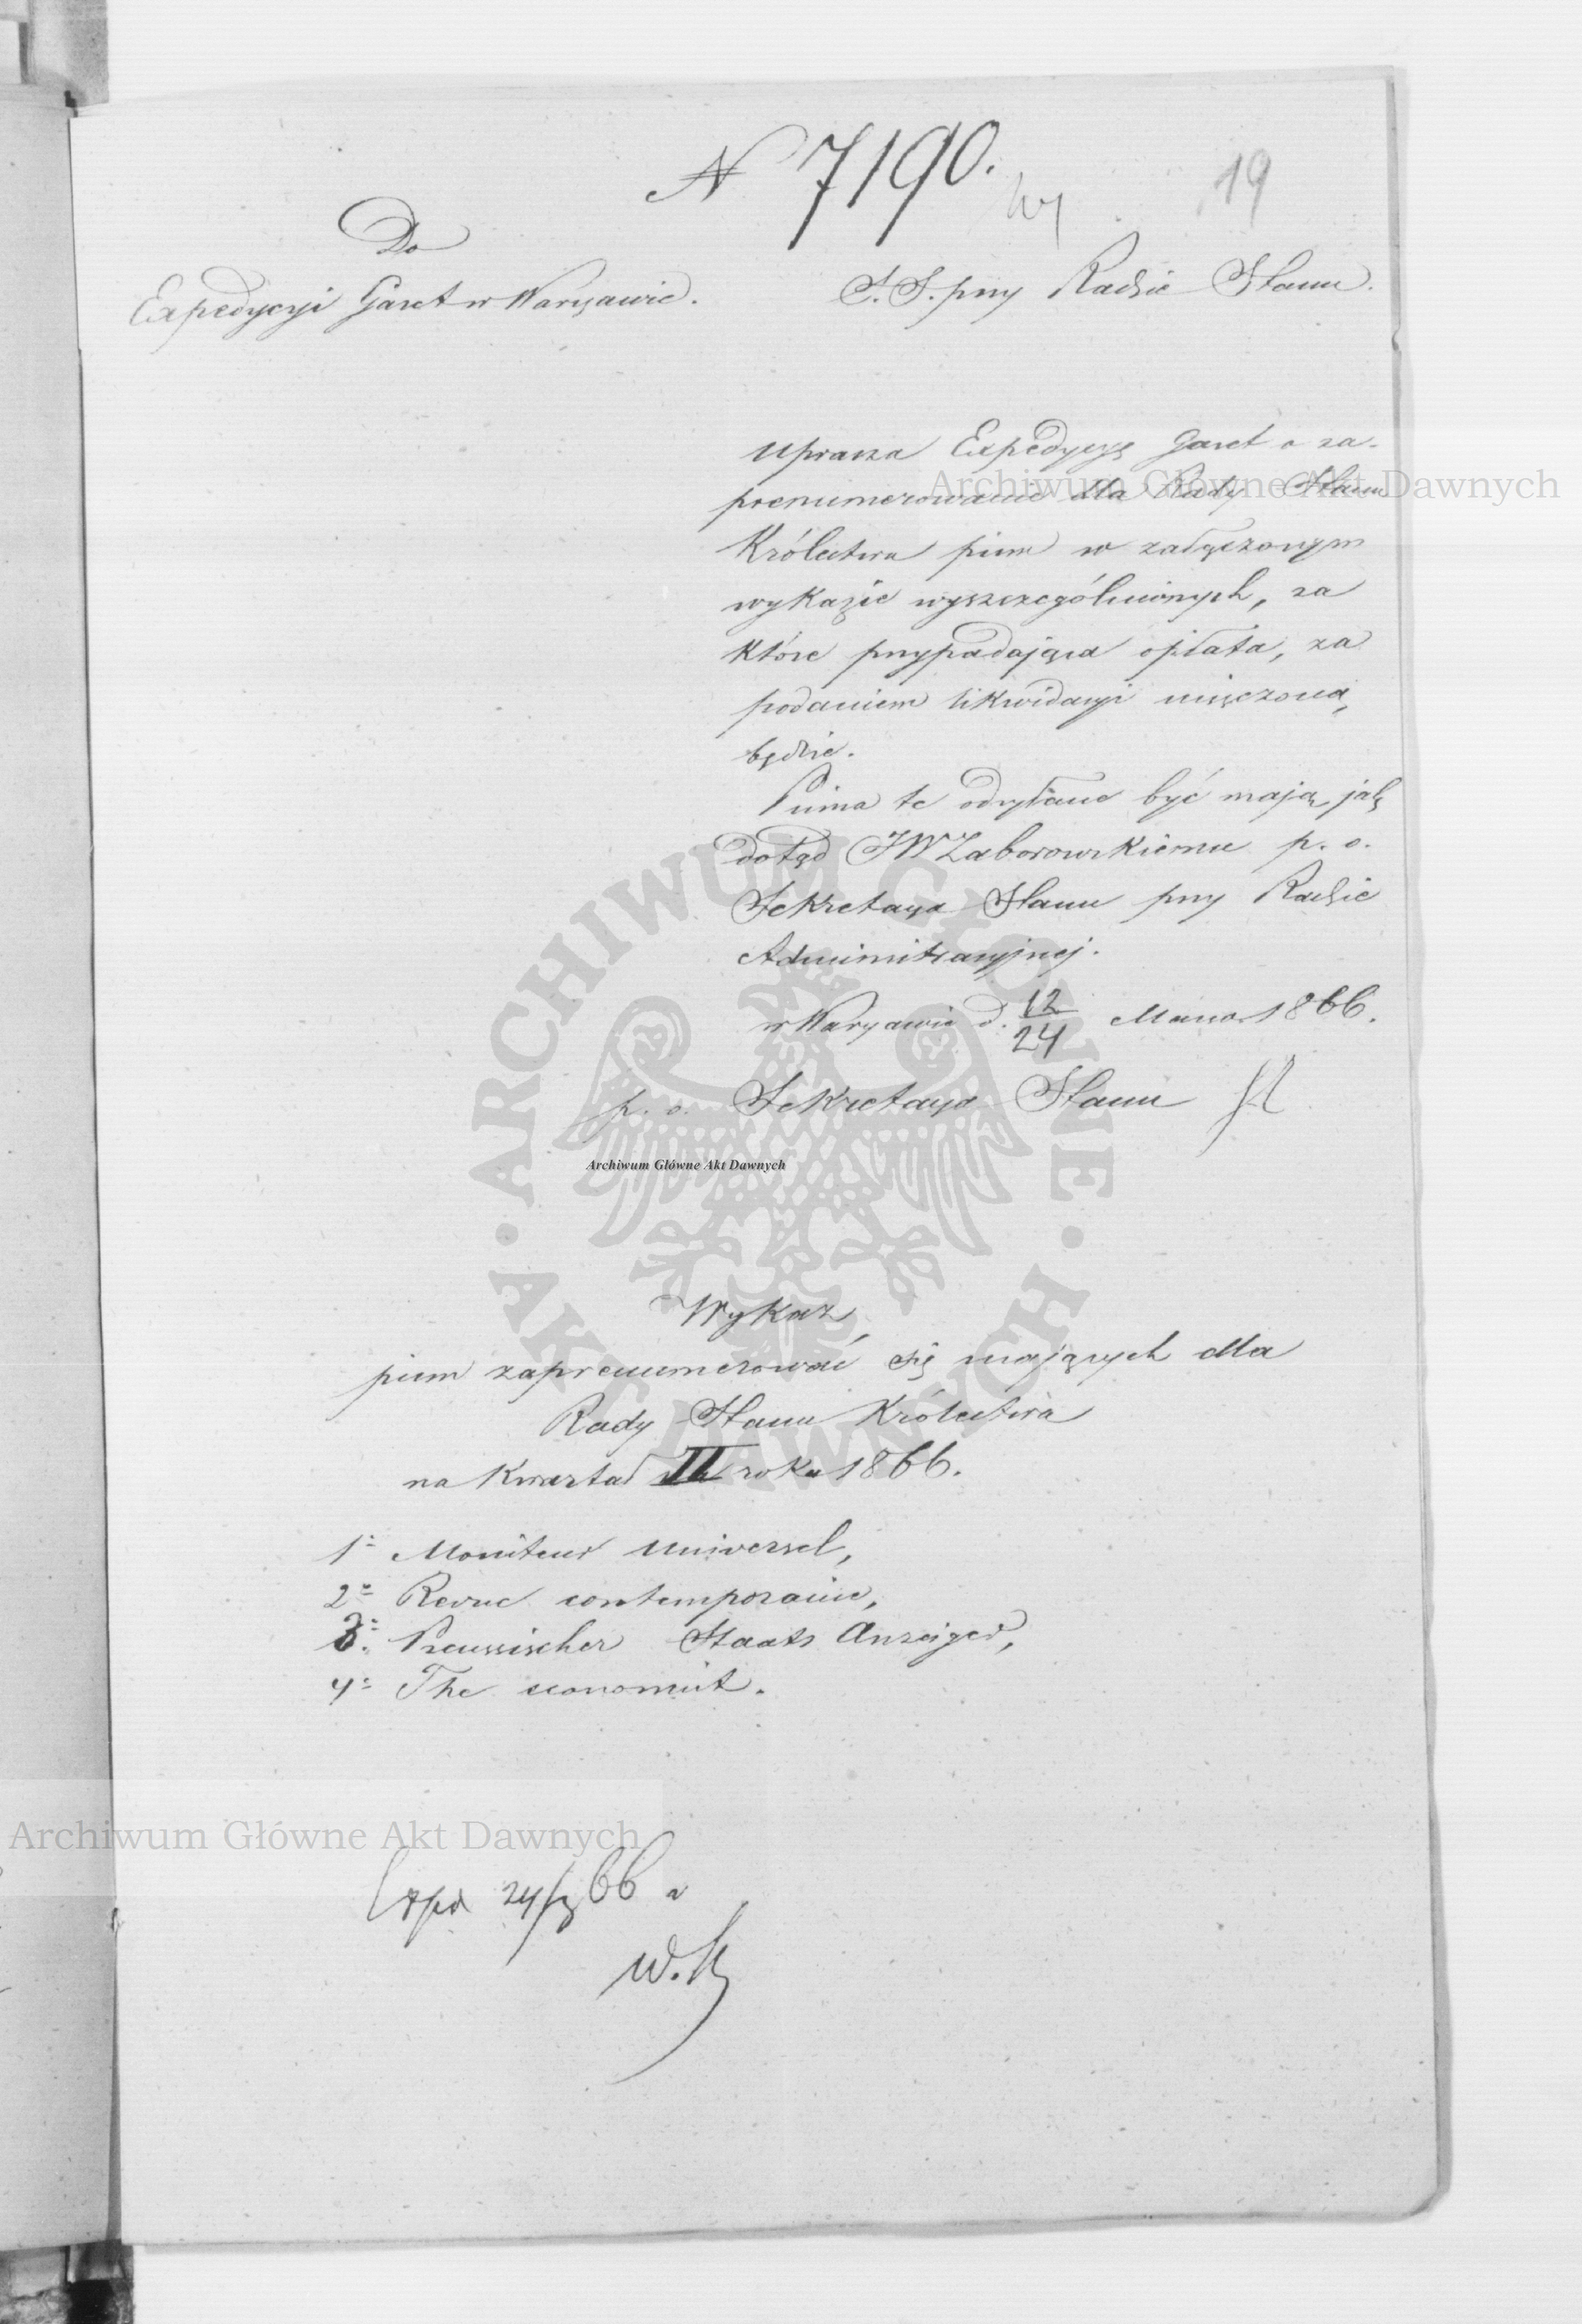 N 7190.
19
Do
Expedycyi Gazet w Warszawie.
S. S. przy Radzie Stanu.
uprasza Expedycyę Gazet o za-
prenumerowanie dla Rady Stanu
Królestwa pism w załączonym
wykazie wyszczególnionych, za
które przypadająca opłata, za
podaniem likwidacyi uiszczoną,
będzie.
Pisma te odsyłane być mają, jak
dotąd JW Zaborowskiemu p. o.
Sekretarza Stanu przy Radzie
Administracyjnej.
w Warszawie d. 12/24 Marca 1866.
p. o. Sekretarza Stanu
Archiwum Główne Akt Dawnych
Wykaz
pism zaprenumerować się mających dla
Rady Stanu Królestwa
na Kwartał II roku 1866.
1. Moniteur Universel,
2. Revue contemporaine,
3. Preussischer Staats Anzeiger,
4. The economist.
Archiwum Główne Akt Dawnych
Exped 24/3 66
Archiwum Główne Akt Dawnych
ARCHIWUM GŁÓWNE · AKT DAWNYCH ·